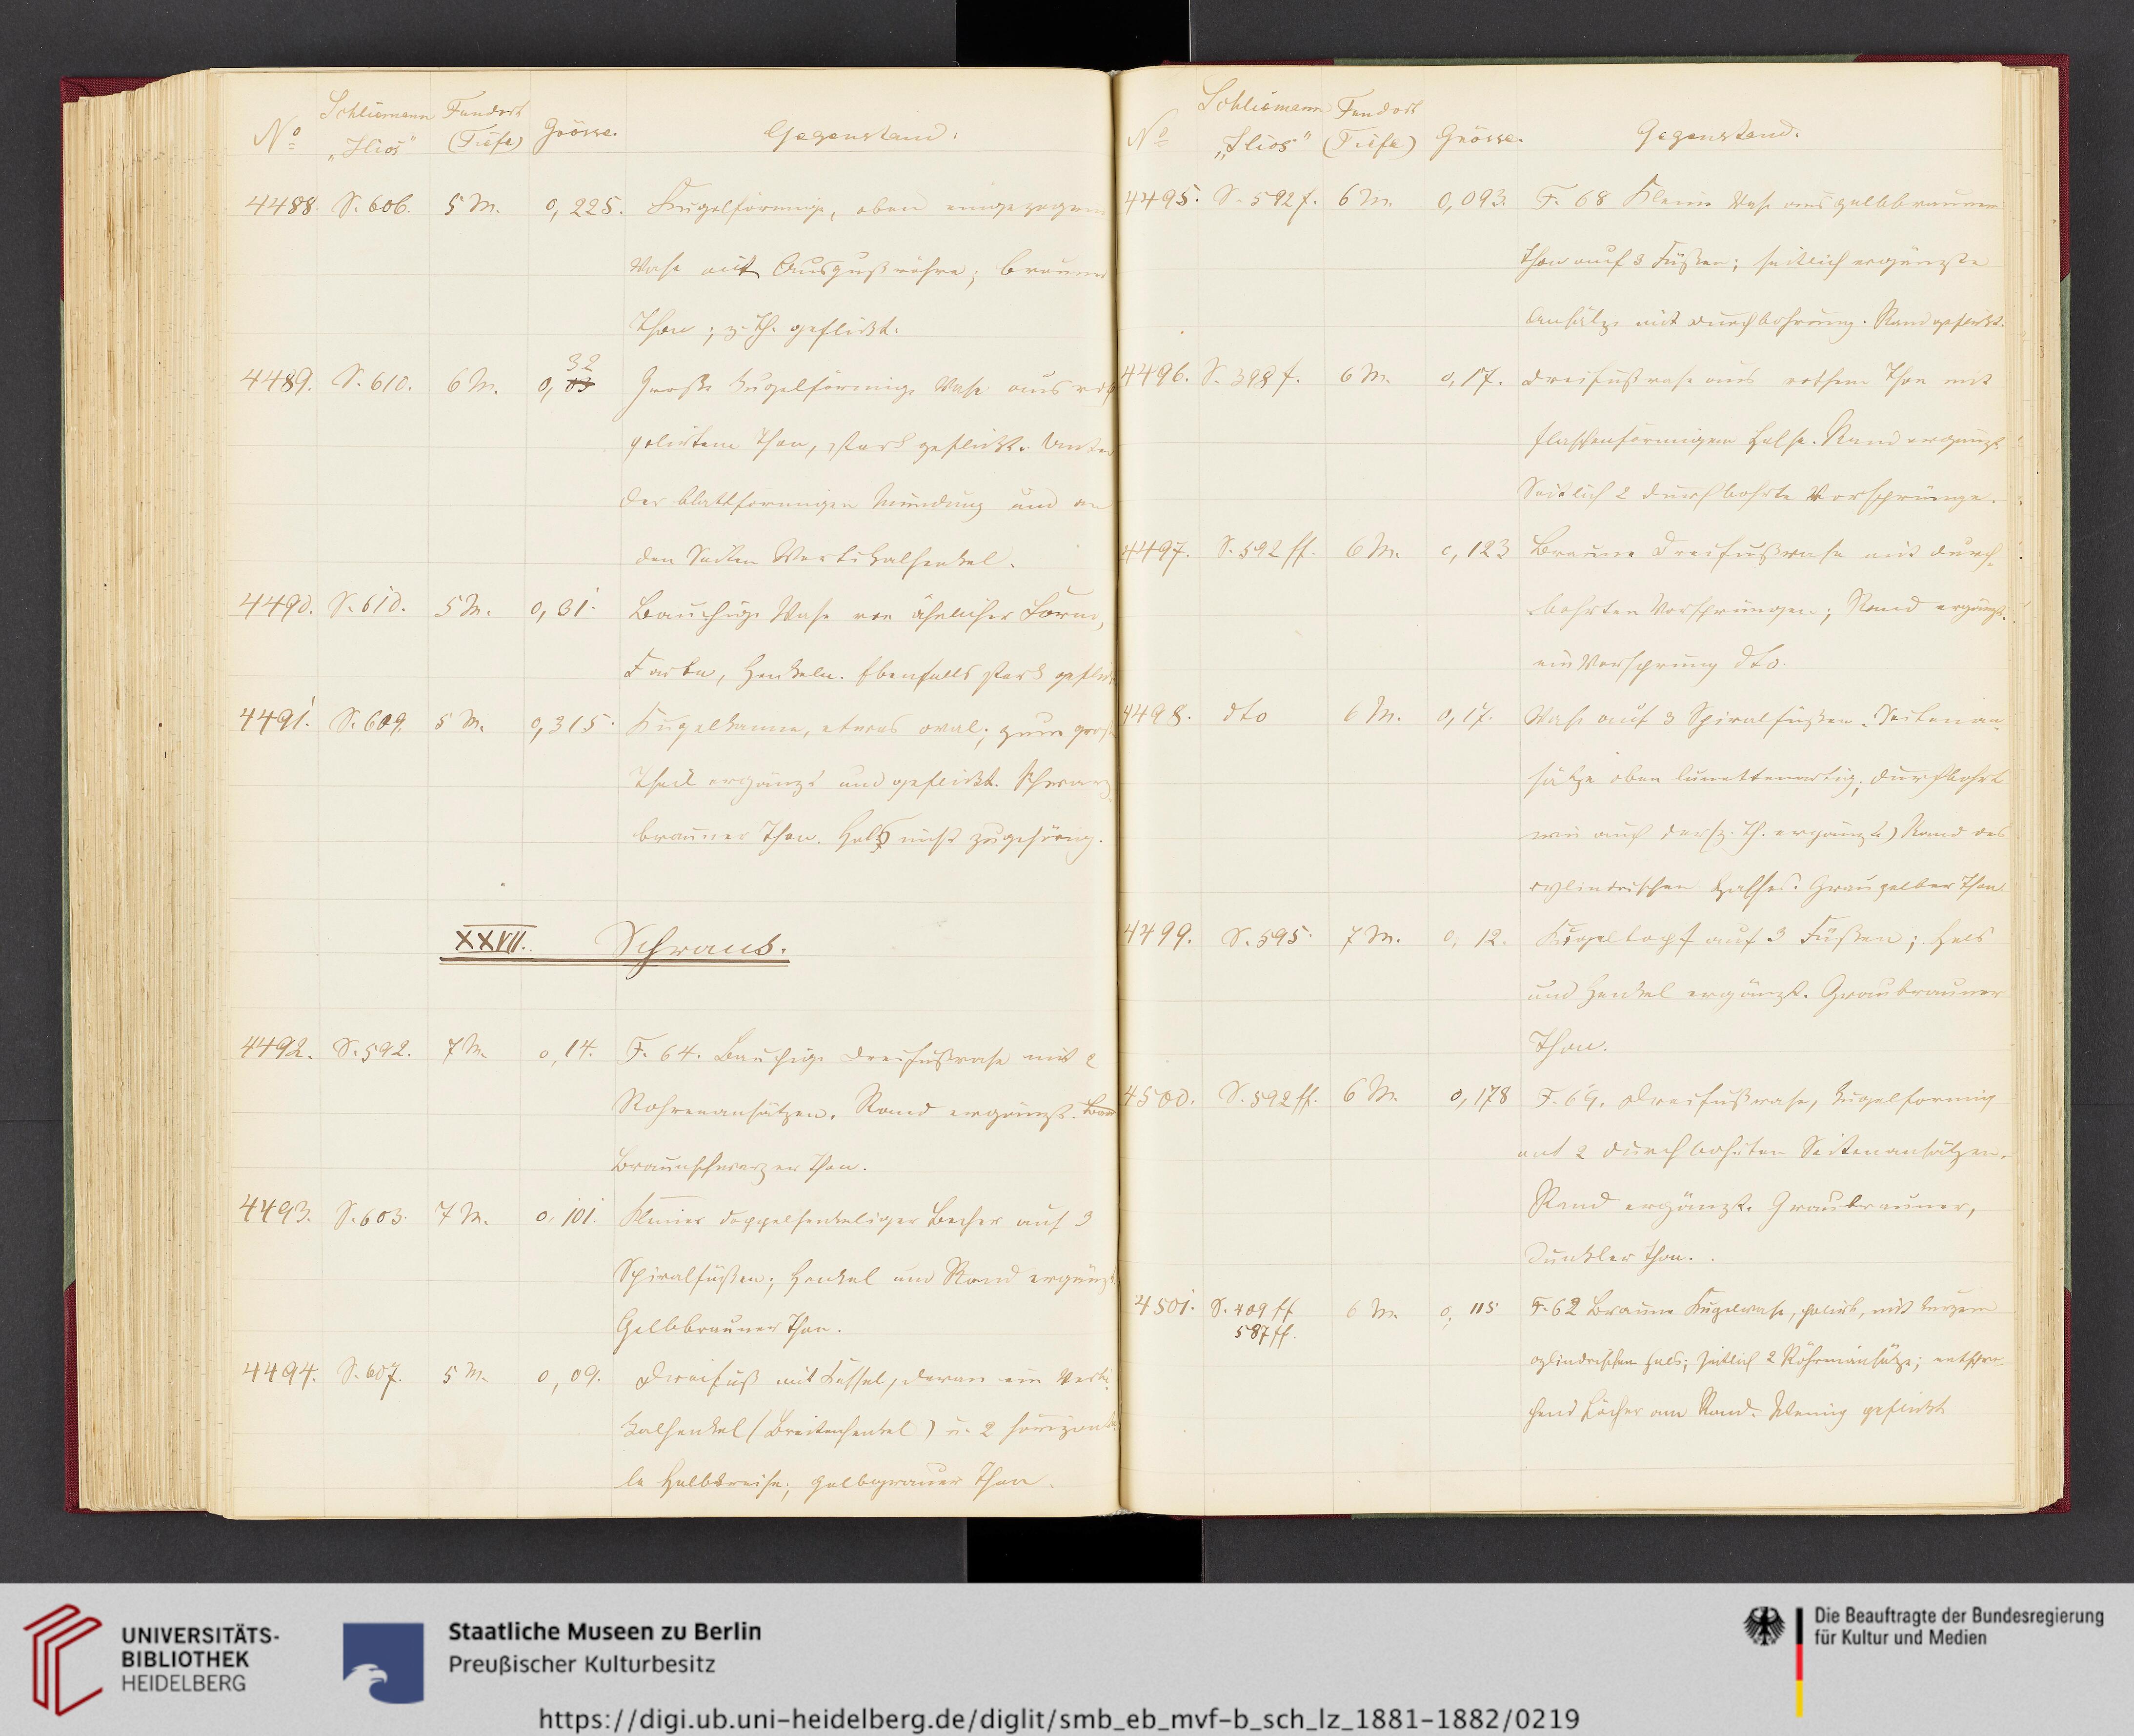 Nº Schliemann „Ilios" Fundort (Tiefe) Grösse. Gegenstand.
4488. S. 606. 5 M. 0,225. Kugelförmige, oben eingezogene
Vase mit Ausgußröhre; brauner
Thon; z. Th. geflickt.
4489. S. 610. 6 M. 0,32 Große kugelförmige Vase aus roth
polirtem Thon, stark geflickt. Unter
der blattförmigen Mündung und an
den Seiten Vertikalhenkel.
4490. S. 610. 5 M. 0,31. Bauchige Vase von ähnlicher Form,
Farbe, Henkeln. Ebenfalls stark geflickt
4491. S. 609. 5 M. 0,315. Kugelkanne, etwas oval; zum groß
Theil ergänzt und geflickt. Schwarz
brauner Thon. Hals nicht zugehörig.
XXVII. Schrank.
4492. S. 592. 7 M. 0,14. F. 64. Bauchige Dreifußvase mit 2
Rohrenansätzen. Rand ergänzt.
Braunschwarzer Thon.
4493. S. 603. 7 M. 0,101. Kleiner doppelhenkeliger Becher auf 3
Spiralfüßen; Henkel und Rand ergänzt
Gelbbrauner Thon.
4494. S. 607. 5 M. 0,09. Dreifuß mit Kessel, daran ein Verti-
kalhenkel (Breitenhenkel) u. 2 horizonta
le Halbkreise; gelbgrauer Thon.
Nº Schliemann „Ilios" Fundort (Tiefe) Grösse. Gegenstand.
4495. S. 592 f. 6 M. 0,093. F. 68 Kleine Vase aus gelbbraunem
Thon auf 3 Füßen; seitlich ergänzte
Ansätze mit Durchbohrung. Rand geflickt.
4496. S. 392 f. 6 M. 0,17. Dreifußvase aus rothem Thon mit
flaschenförmigem Halse. Rand ergänzt
Seitlich 2 durchbohrte Vorsprünge.
4497. S. 592 ff. 6 M. 0,123 Braune Dreifußvase mit durch-
bohrten Vorsprüngen; Rand ergänzt.
ein Vorsprung dto.
4498. dto 6 M. 0,17. Vase auf 3 Spiralfüßen. Seitenan-
sätze oben lunettenartig; durchbohrt
wie auch der (z. Th. ergänzte) Rand des
cylindrischen Halses. Graugelber Thon
4499. S. 595. 7 M. 0,12. Kugeltopf auf 3 Füßen; Hals
und Henkel ergänzt. Graubrauner
Thon.
4500. S. 592 ff. 6 M. 0,178 F. 69. Dreifußvase, kugelförmig
mit 2 durchbohrten Seitenansätzen.
Rand ergänzt. Graubrauner,
dunkler Thon.
4501. S. 409 ff 6 M. 0,115 F. 62 Braune Kugelvase, polirt, mit kurzem
587 ff.
cylindrischem Hals; seitlich 2 Röhrenansätze; entspre-
chend Löcher am Rand. Wenig geflickt
UNIVERSITÄTS-
BIBLIOTHEK
HEIDELBERG
Staatliche Museen zu Berlin
Preußischer Kulturbesitz
Die Beauftragte der Bundesregierung
für Kultur und Medien
https://digi.ub.uni-heidelberg.de/diglit/smb_eb_mvf-b_sch_lz_1881-1882/0219